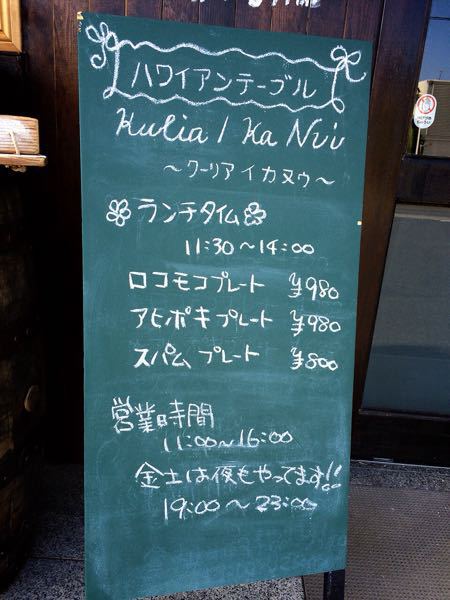 ハワイアンテーブル
Kulia I Ka Nu'u
～クーリア イカヌゥ～
ランチタイム
11:30～14:00
ロコモコプレート ¥980
アヒポキプレート ¥980
スパムプレート ¥800
営業時間
11:00～16:00
金土は夜もやってます!!
19:00～23:00